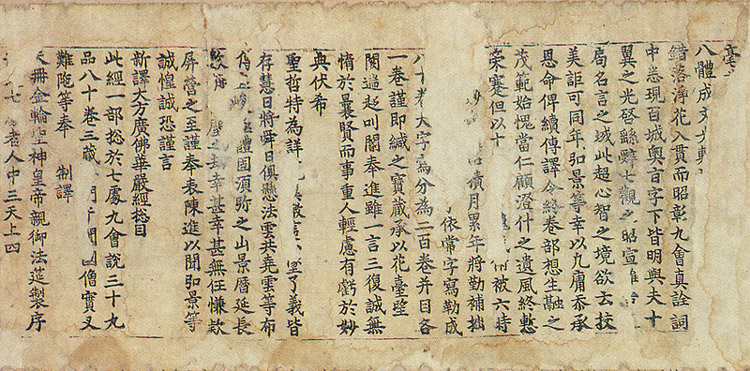 毫
八體成文
錯落淨花入貫而昭彰九會真詮詞
中悉現百城奧言字下皆明與夫十
翼之光啓繇 七觀之昭宣
局名言之域此超心智之境欲去挍
美詎可同年弘景等幸以九庸忝承
恩命俾續傳譯今終卷部想生融之
茂範始愧當仁顧澄什之遺風終慙
榮蹇但以十 被六時
積月累年將勤補拙
依常字寫勒成
八十卷大字寫分為二百卷并目各
一卷謹即緘之寶藏承以花臺
奉進雖一言三復誠無
惰於曩賢而事重人輕慮有虧於妙
典伏希
聖哲特為詳 了義皆
存慧日將舜日俱懸法雲共堯雲等布
體固須弥之山景曆延長
幸甚幸甚無任慊款
屏營之至謹奉表陳進以聞弘景等
誠惶誠恐謹言
新譯大方廣佛華嚴經惣目
此經一部惣於七處九會說三十九
品八十卷三藏 門于闐國僧實叉
難陀等奉 制譯
天冊金輪聖神皇帝親御法筵製序
七 者人中三天上四